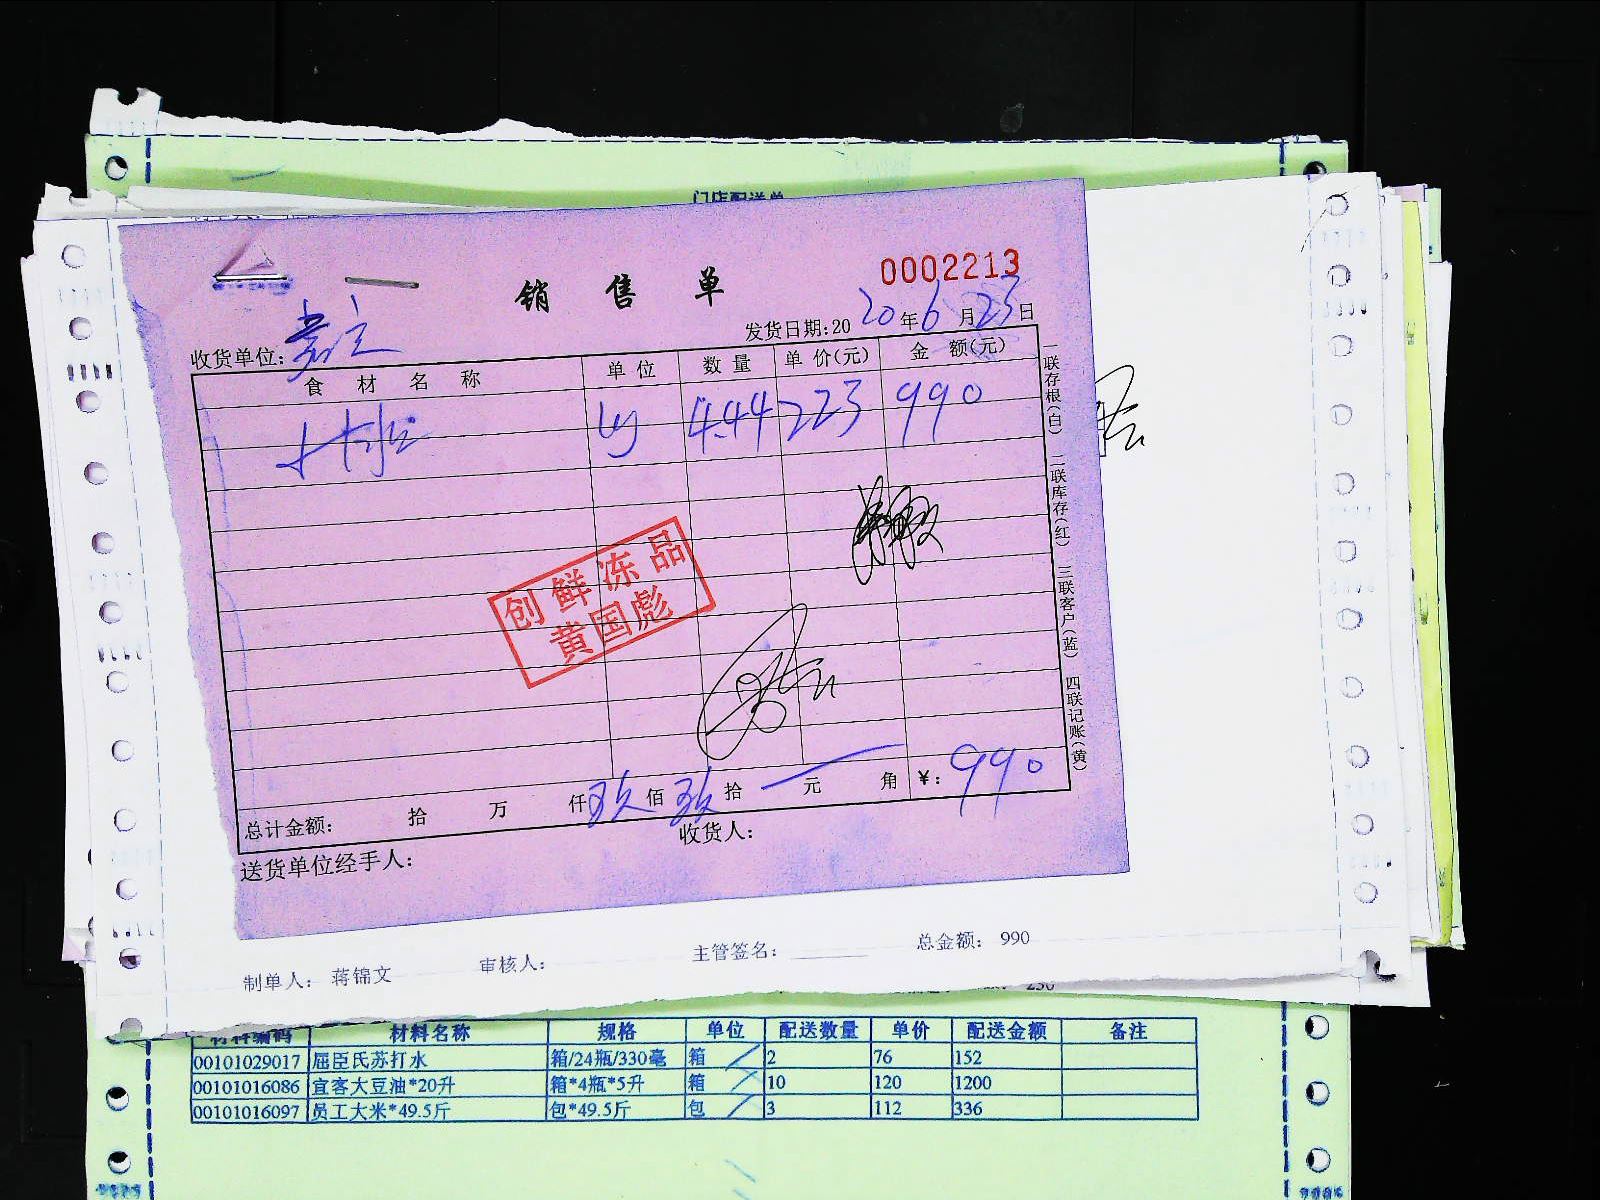 门店配送单
销售单
0002213
收货单位:
发货日期:2020年6月23日
食材名称 单位 数量 单价(元) 金额(元)
4.44 223 990
一联存根(白) 二联库存(红) 三联客户(蓝) 四联记账(黄)
创鲜冻品
黄国彪
总计金额: 拾 万 仟玖佰玖拾 元 角 ¥:990
送货单位经手人: 收货人:
制单人: 蒋锦文 审核人: 主管签名: 总金额: 990
230
材料编码 材料名称 规格 单位 配送数量 单价 配送金额 备注
00101029017 屈臣氏苏打水 箱/24瓶/330毫 箱 2 76 152
00101016086 宜客大豆油*20升 箱*4瓶*5升 箱 10 120 1200
00101016097 员工大米*49.5斤 包*49.5斤 包 3 112 336